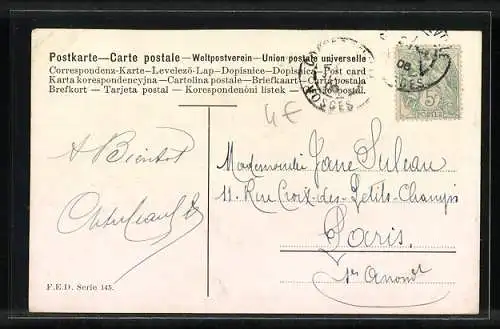 Postkarte—Carte postale—Weltpostverein—Union postale universelle
Correspondenz-Karte—Levelező-Lap—Dopisnice—Dopisnica—Post card
Karta korespondencyjna—Cartolina postale—Briefkaart—Carta postala
Brefkort—Tarjeta postal—Korespondenóni lístek—
4€
A Bientot
Mademoiselle Jane Suleau
11. Rue Croix-des-Petits-Champs
Paris.
1er Arrondt
F.E.D. Serie 145.
08
5
POSTES